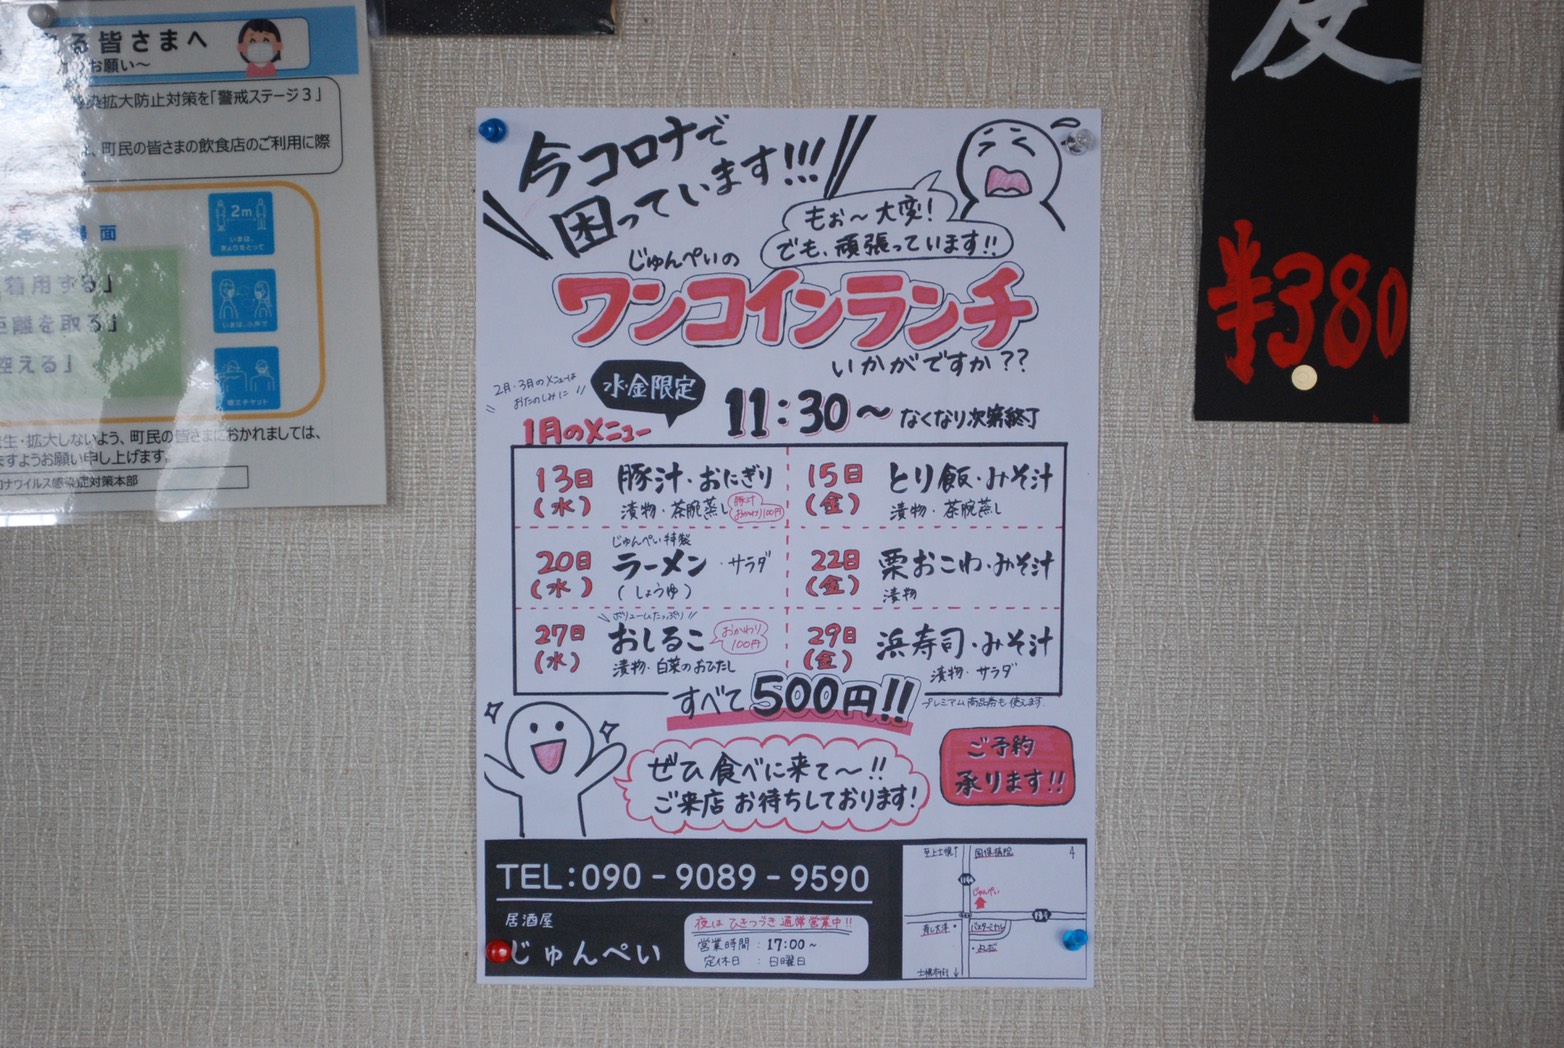 る皆さまへ
お願い～
染拡大防止対策を「警戒ステージ3」
、町民の皆さまの飲食店のご利用に際
場面
着用する」
距離を取る」
控える」
2m
生・拡大しないよう、町民の皆さまにおかれましては、
ますようお願い申し上げます。
ロナウイルス感染症対策本部
¥380
今コロナで
困っています!!!
もぉ～大変!
でも、頑張っています!!
じゅんぺいの
ワンコインランチ
いかがですか??
2月・3月のメニューは
おたのしみに
水・金限定
11:30～ なくなり次第終了
1月のメニュー
13日(水) 豚汁・おにぎり
漬物・茶碗蒸し
豚汁おかわり100円
15日(金) とり飯・みそ汁
漬物・茶碗蒸し
じゅんぺい特製
20日(水) ラーメン・サラダ
(しょうゆ)
22日(金) 栗おこわ・みそ汁
漬物
ボリュームたっぷり
27日(水) おしるこ
おかわり100円
漬物・白菜のおひたし
29日(金) 浜寿司・みそ汁
漬物・サラダ
すべて500円!!
プレミアム商品券も使えます.
ぜひ食べに来て～!!
ご来店お待ちしております!
ご予約
承ります!!
TEL:090-9089-9590
居酒屋
じゅんぺい
夜はひきつづき通常営業中!!
営業時間:17:00～
定休日:日曜日
至上士幌↑
国保病院
じゅんぺい
バスターミナル
士幌市街↓